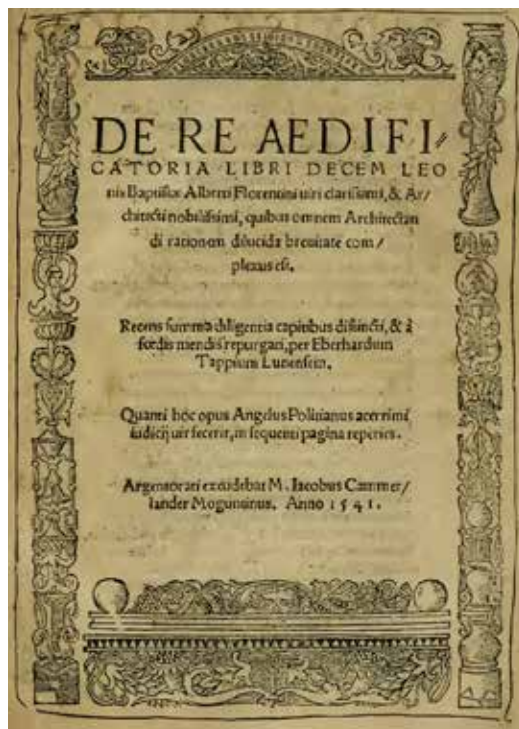 DE RE AEDIFI/
CATORIA LIBRI DECEM LEO
nis Baptistæ Alberti Florentini uiri clarissimi, & Ar/
chitecti nobilissimi, quibus omnem Architectan
di rationem dilucida breuitate com/
plexus est.
Recens summa diligentia capitibus distincti, & à
fœdis mendis repurgati, per Eberhardum
Tappium Lunensem.
Quanti hoc opus Angelus Politianus acerrimi
iudicij uir fecerit, in sequenti pagina reperies.
Argentorati excudebat M. Iacobus Cammer/
lander Moguntinus. Anno 1541.